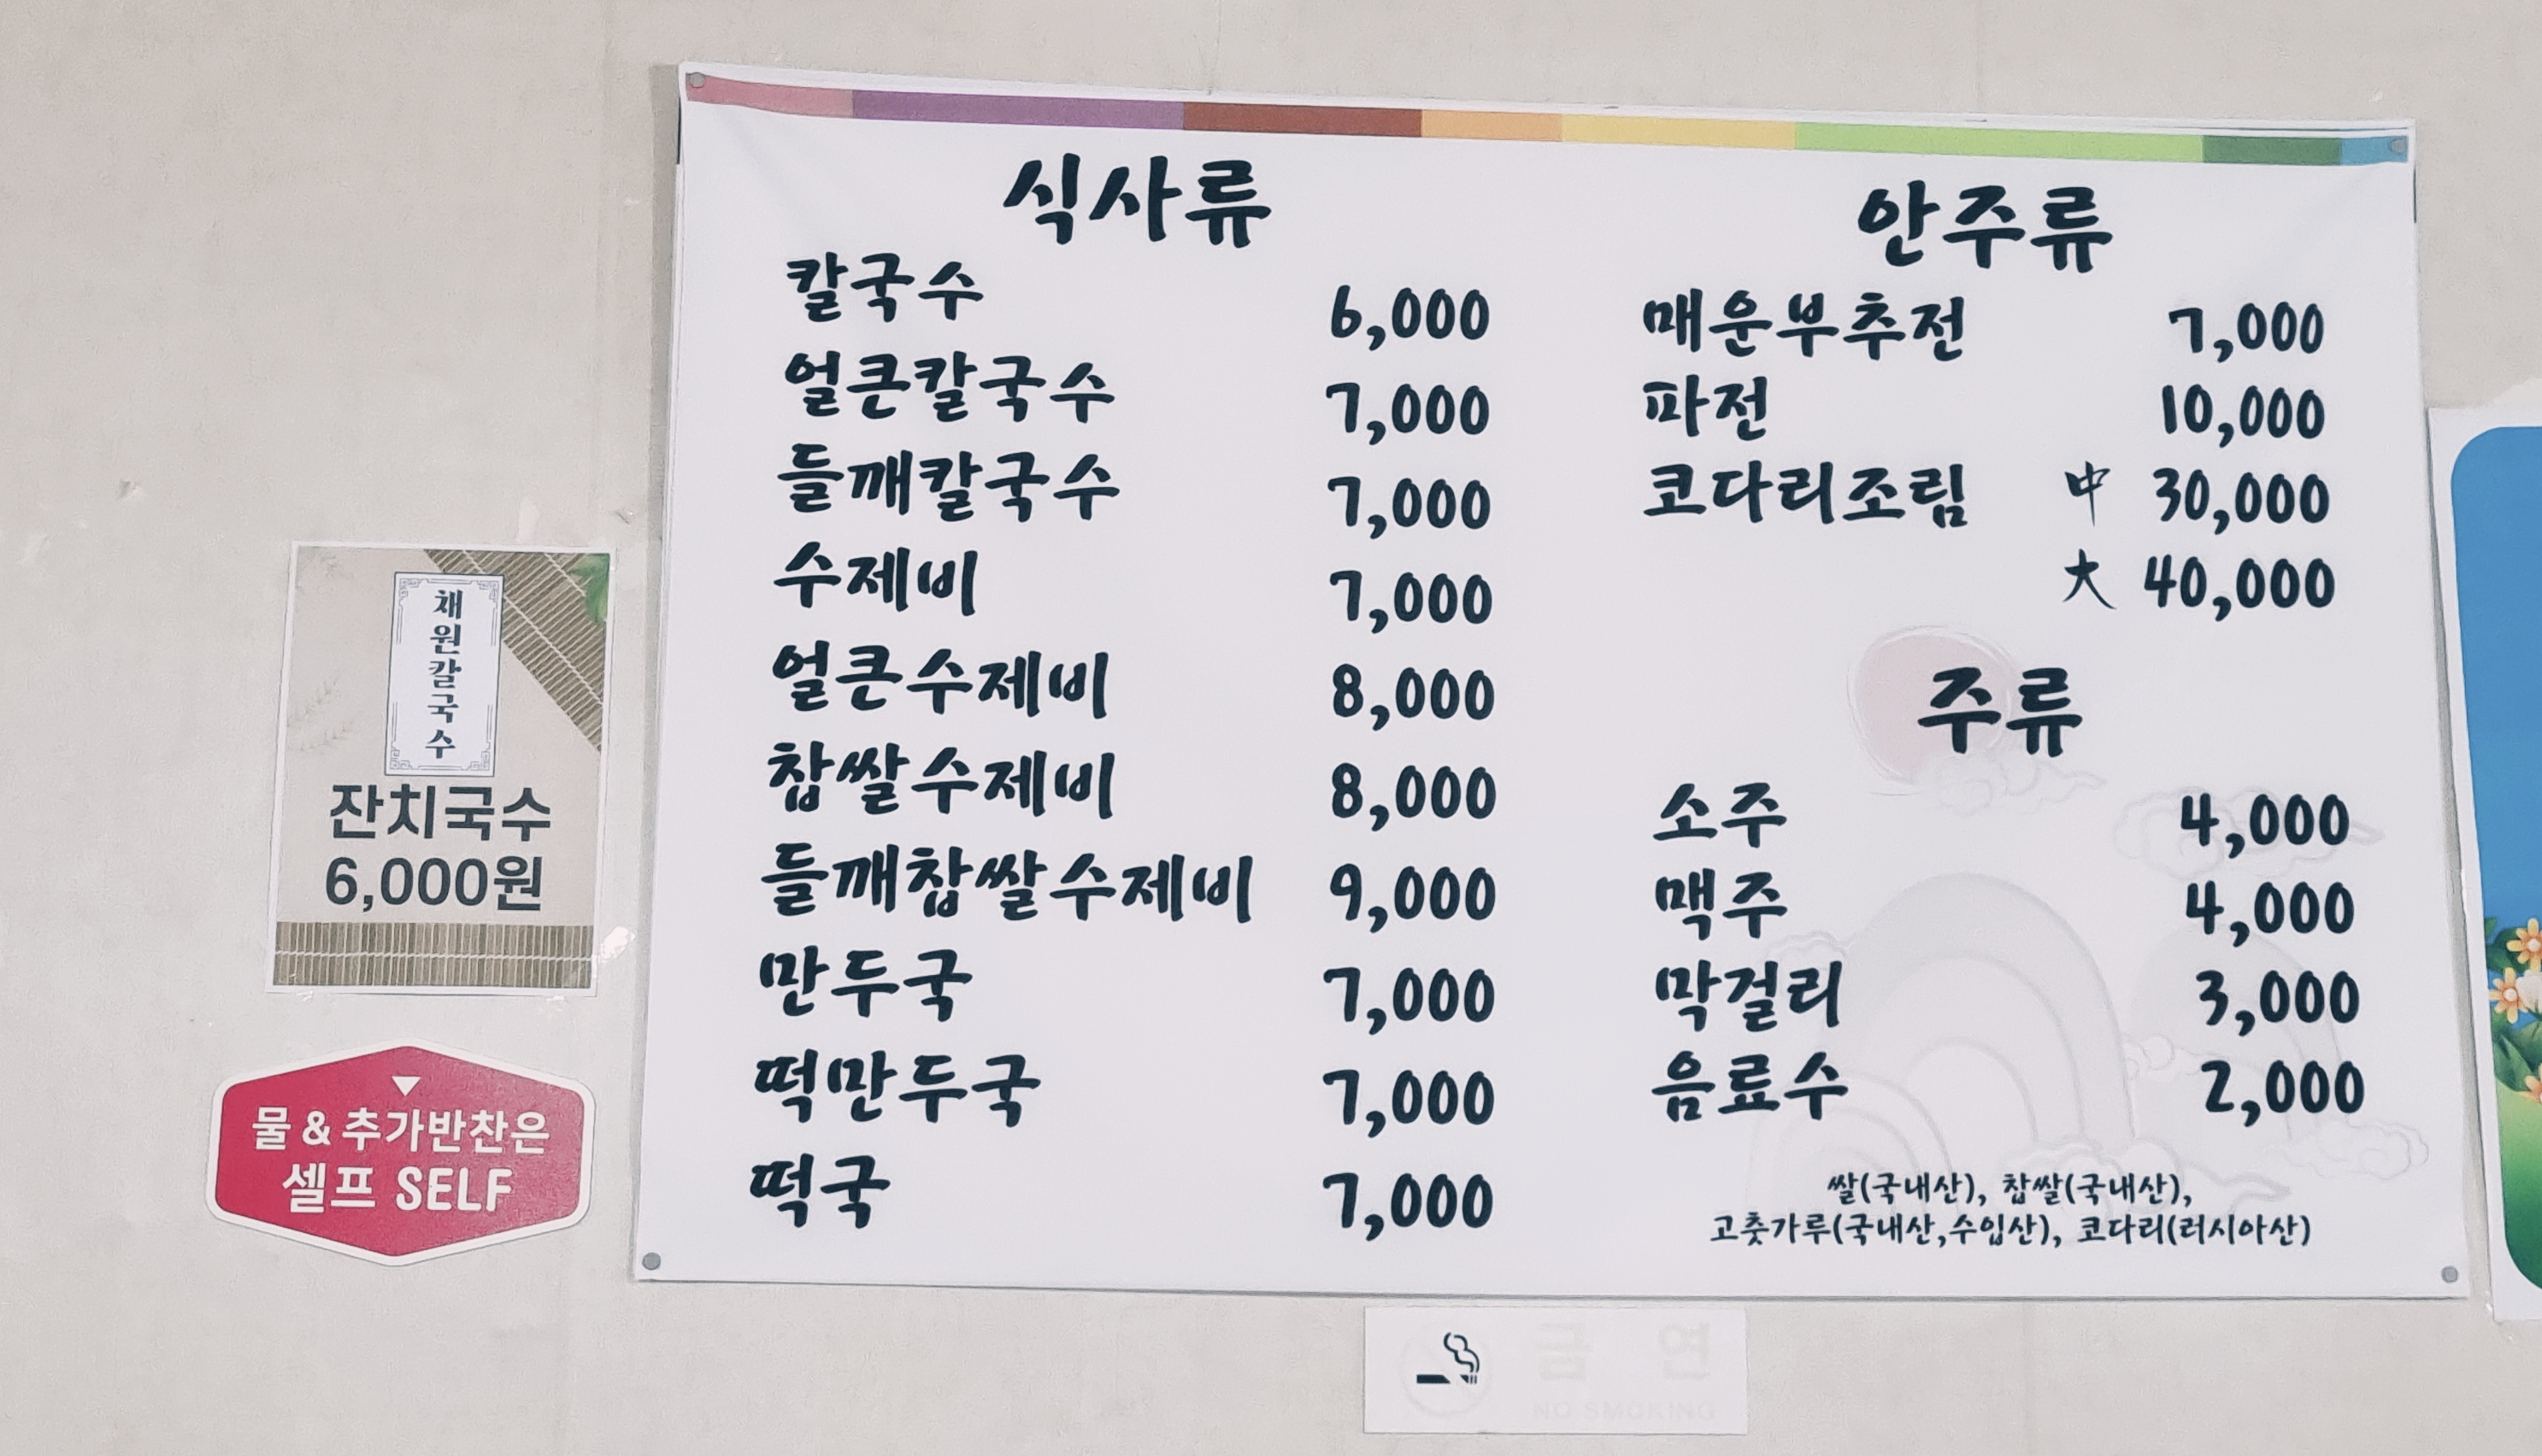 식사류
칼국수 6,000
얼큰칼국수 7,000
들깨칼국수 7,000
수제비 7,000
얼큰수제비 8,000
찹쌀수제비 8,000
들깨찹쌀수제비 9,000
만두국 7,000
떡만두국 7,000
떡국 7,000
안주류
매운부추전 7,000
파전 10,000
코다리조림 中 30,000
大 40,000
주류
소주 4,000
맥주 4,000
막걸리 3,000
음료수 2,000
쌀(국내산), 찹쌀(국내산),
고춧가루(국내산,수입산), 코다리(러시아산)
채원칼국수
잔치국수
6,000원
물 & 추가반찬은
셀프 SELF
금 연
NO SMOKING